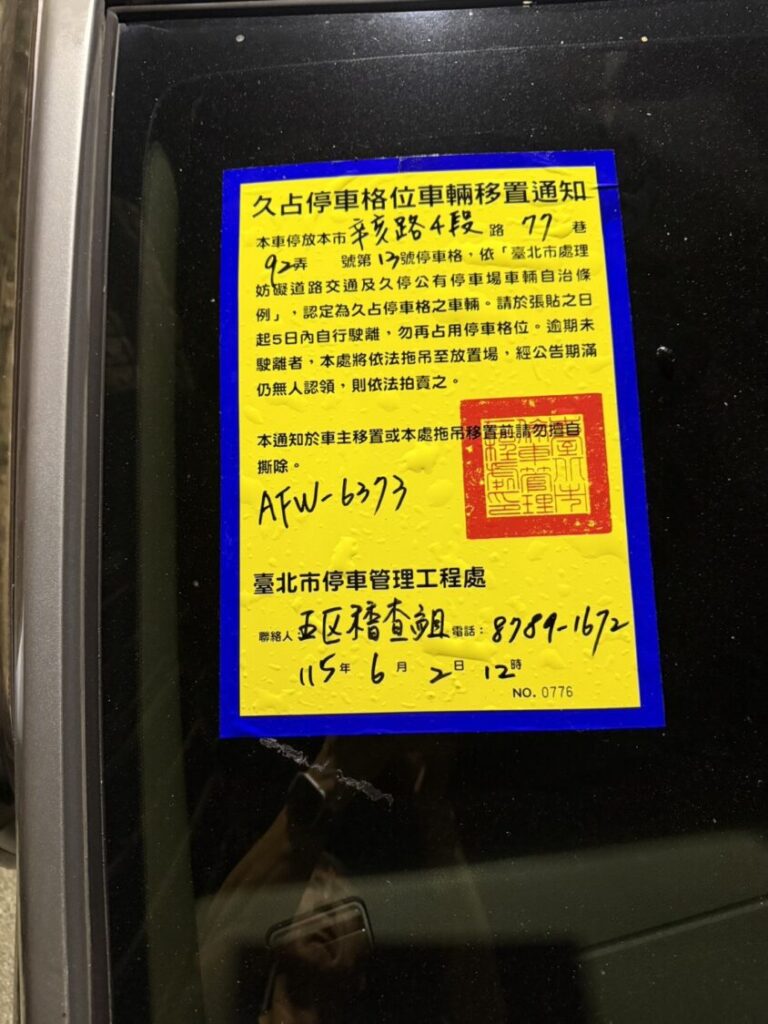 久占停車格位車輛移置通知
本車停放本市 辛亥路4段 路 77 巷
92弄 號第13號停車格，依「臺北市處理
妨礙道路交通及久停公有停車場車輛自治條
例」，認定為久占停車格之車輛。請於張貼之日
起5日內自行駛離，勿再占用停車格位。逾期未
駛離者，本處將依法拖吊至放置場，經公告期滿
仍無人認領，則依法拍賣之。
本通知於車主移置或本處拖吊移置前請勿擅自
撕除。
臺北市停車管理工程處印
AFW-6373
臺北市停車管理工程處
聯絡人：五区稽查組 電話：8789-1672
115年 6月 2日 12時
NO. 0776